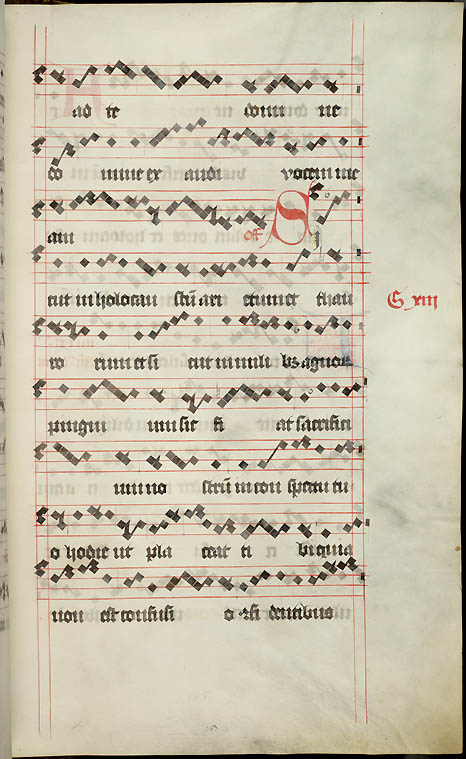 ad te domi ne
do mine ex audi vocem me
am off S
cut in holocau stū ari etum et thau
ro rum et si cut in mili bz agnoꝝ
G xiij
pingui um sic fi at sacrifici
um no strū in con spectu tu
o hodie ut pla ceat ti bi quia
non est confusi o ꝯfi dentibus